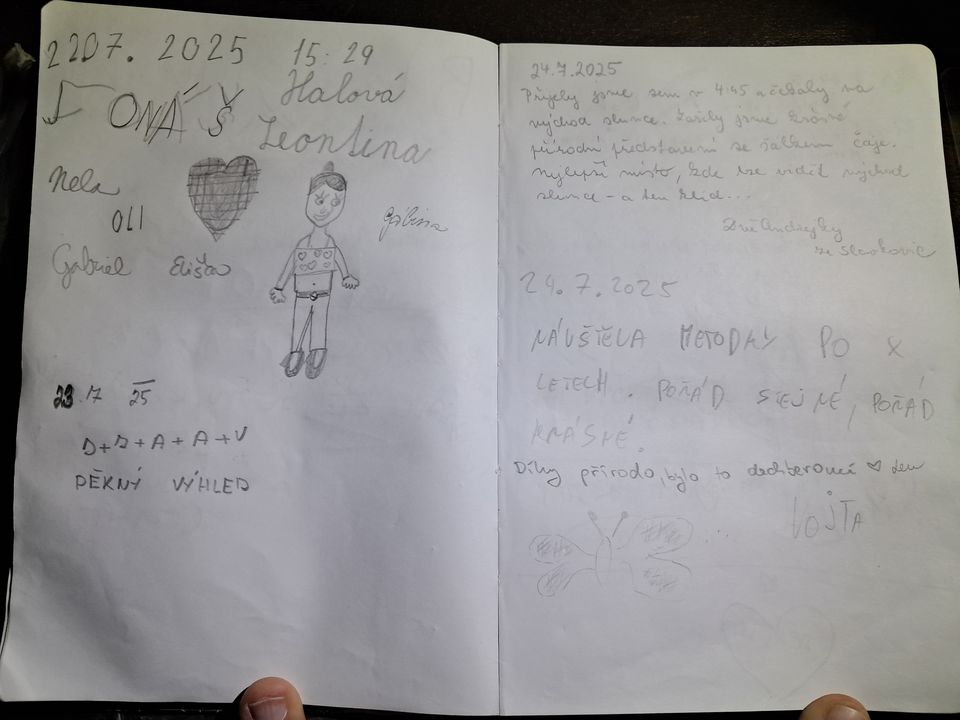 2207. 2025 15:29
JONÁŠ Halová
Leontina
Nela
Oll
Gabriel Eliška
23.7 25
D+D+A+A+V
PĚKNÝ VÝHLED
24.7.2025
Přijely jsme sem v 4:45 a čekaly na
východ slunce. Zažily jsme krásné
přírodní představení se šálkem čaje.
Nejlepší místo, kde lze vidět východ
slunce - a ten klid...
Dvě Andrejky
ze Slavkovic
24.7.2025
NÁVŠTĚVA METODKY PO X
LETECH. POŘÁD STEJNÉ, POŘÁD
KRÁSNÉ.
Díky přírodo, bylo to dechberoucí ♡
VOJTA